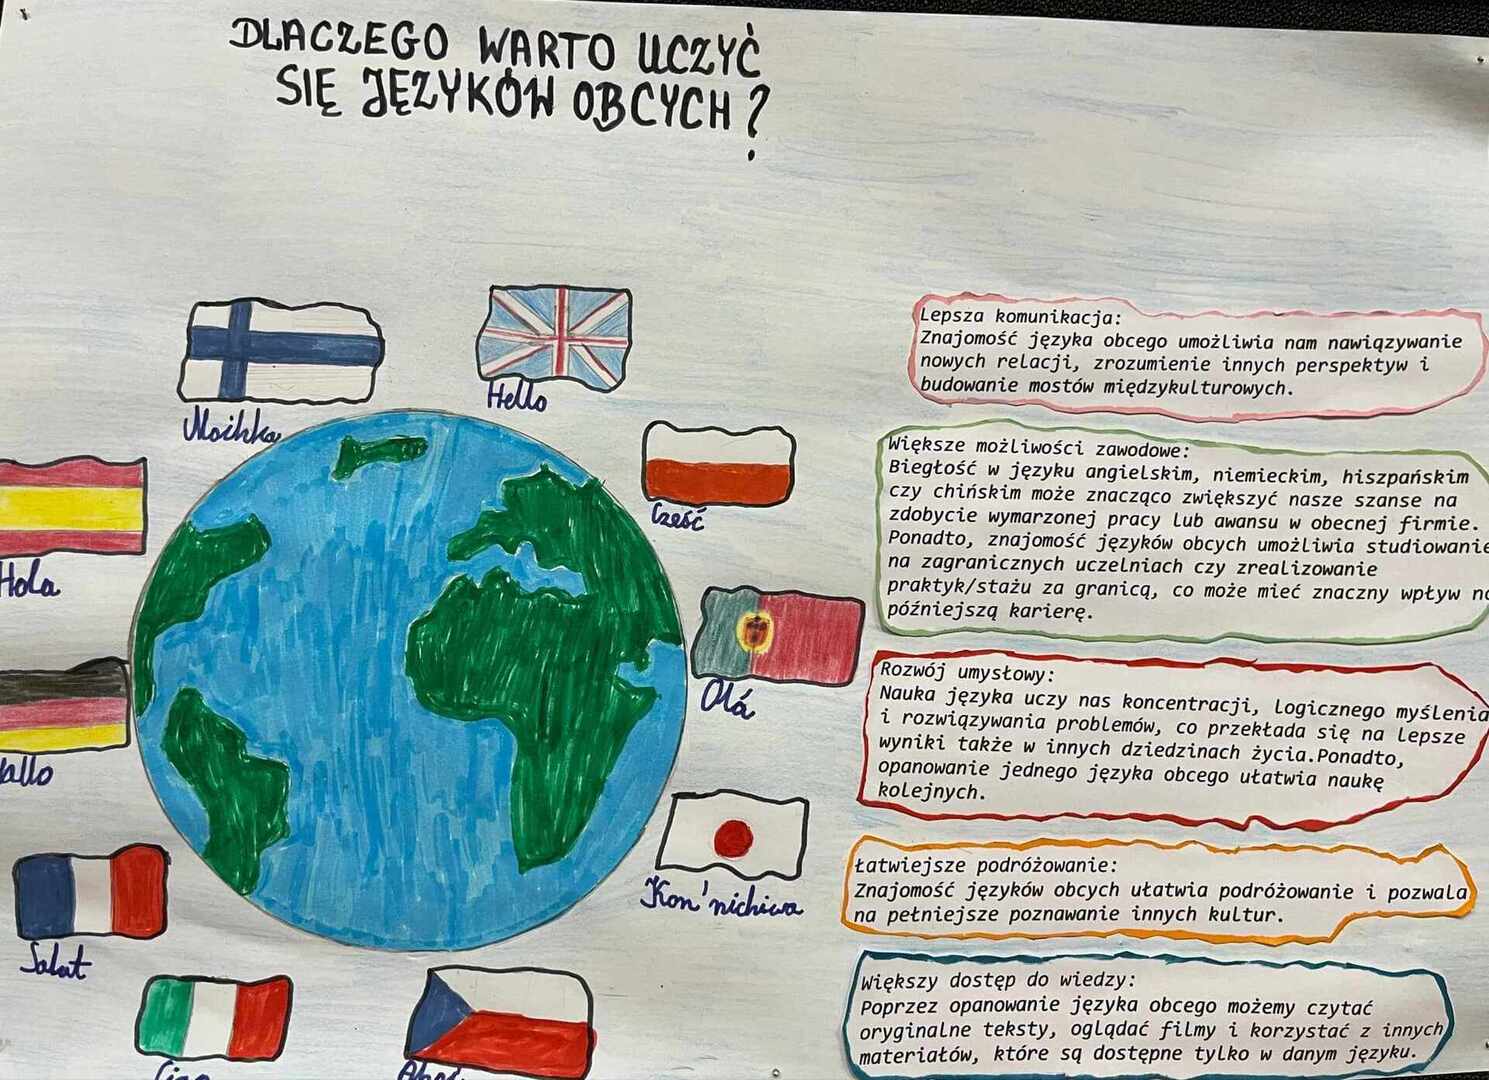 DLACZEGO WARTO UCZYĆ
SIĘ JĘZYKÓW OBCYCH?
Hello
Cześć
Hola
Olá
Kon'nichiwa
Salut
Lepsza komunikacja:
Znajomość języka obcego umożliwia nam nawiązywanie
nowych relacji, zrozumienie innych perspektyw i
budowanie mostów międzykulturowych.
Większe możliwości zawodowe:
Biegłość w języku angielskim, niemieckim, hiszpańskim
czy chińskim może znacząco zwiększyć nasze szanse na
zdobycie wymarzonej pracy lub awansu w obecnej firmie.
Ponadto, znajomość języków obcych umożliwia studiowanie
na zagranicznych uczelniach czy zrealizowanie
praktyk/stażu za granicą, co może mieć znaczny wpływ na
późniejszą karierę.
Rozwój umysłowy:
Nauka języka uczy nas koncentracji, logicznego myślenia
i rozwiązywania problemów, co przekłada się na lepsze
wyniki także w innych dziedzinach życia.Ponadto,
opanowanie jednego języka obcego ułatwia naukę
kolejnych.
Łatwiejsze podróżowanie:
Znajomość języków obcych ułatwia podróżowanie i pozwala
na pełniejsze poznawanie innych kultur.
Większy dostęp do wiedzy:
Poprzez opanowanie języka obcego możemy czytać
oryginalne teksty, oglądać filmy i korzystać z innych
materiałów, które są dostępne tylko w danym języku.